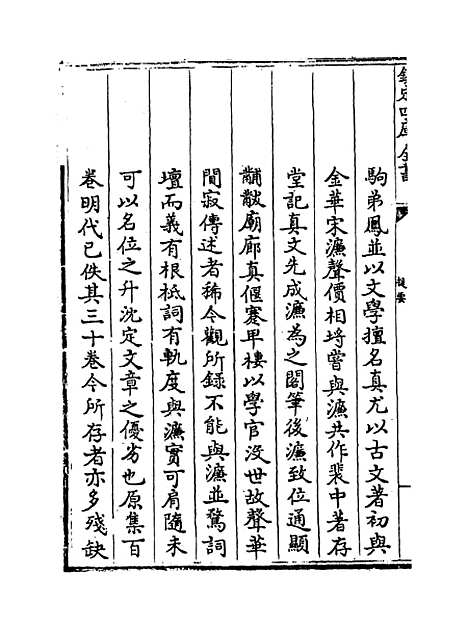 欽定四庫全書
提要
駒弟鳳並以文學擅名真尤以古文著初與
金華宋濂聲價相埒嘗與濂共作裴中著存
堂記真文先成濂為之閣筆後濂致位通顯
黼黻廟廊真偃蹇卑棲以學官没世故聲華
闃寂傳述者稀今觀所錄不能與濂並騖詞
壇而義有根柢詞有軌度與濂實可肩隨未
可以名位之升沈定文章之優劣也原集百
卷明代已佚其三十卷今所存者亦多殘缺